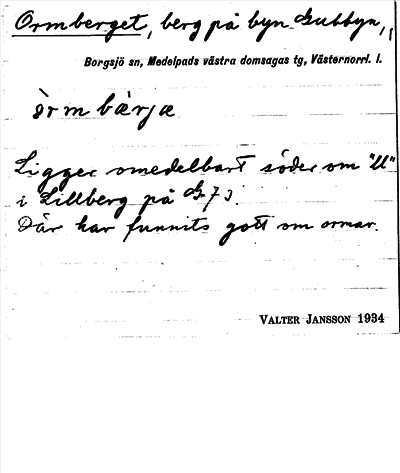 Ormberget, berg på byn Gubbyn,
Borgsjö sn, Medelpads västra domsagas tg, Västernorrl. l.
òrm bærjæ
Ligger omedelbart söder om "U"
i Lillberg på G 73.
Där har funnits gott om ormar.
VALTER JANSSON 1934